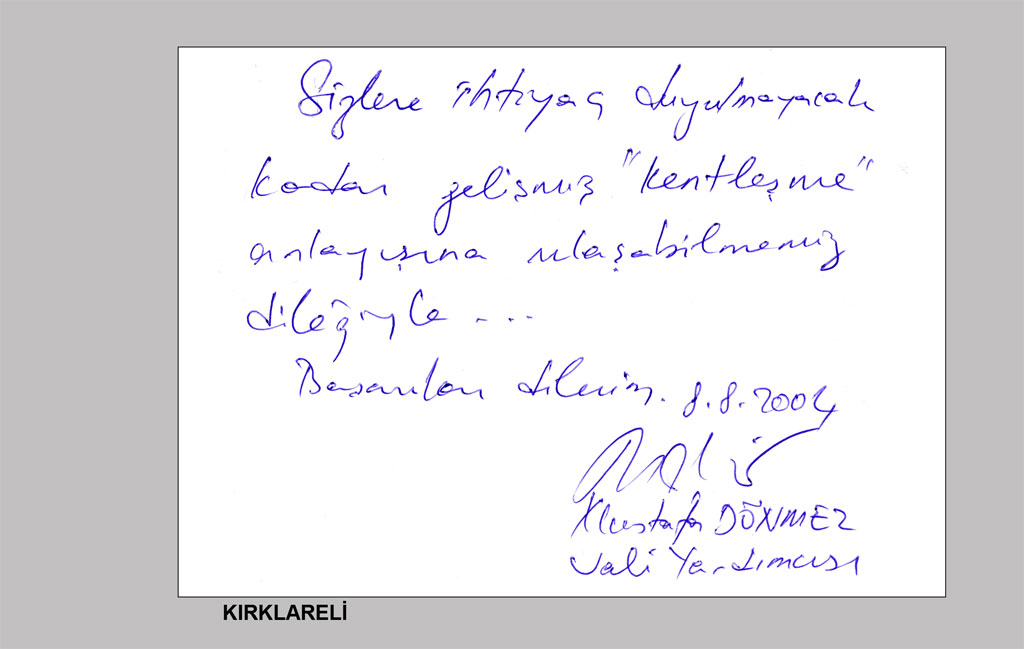 Sizlere ihtiyaç duyulmayacak
kadar gelişmiş "kentleşme"
anlayışına ulaşabilmemiz
dileğiyle ....
Başarılar dilerim. 8.8.2004
Mustafa DÖNMEZ
Vali Yardımcısı
KIRKLARELİ